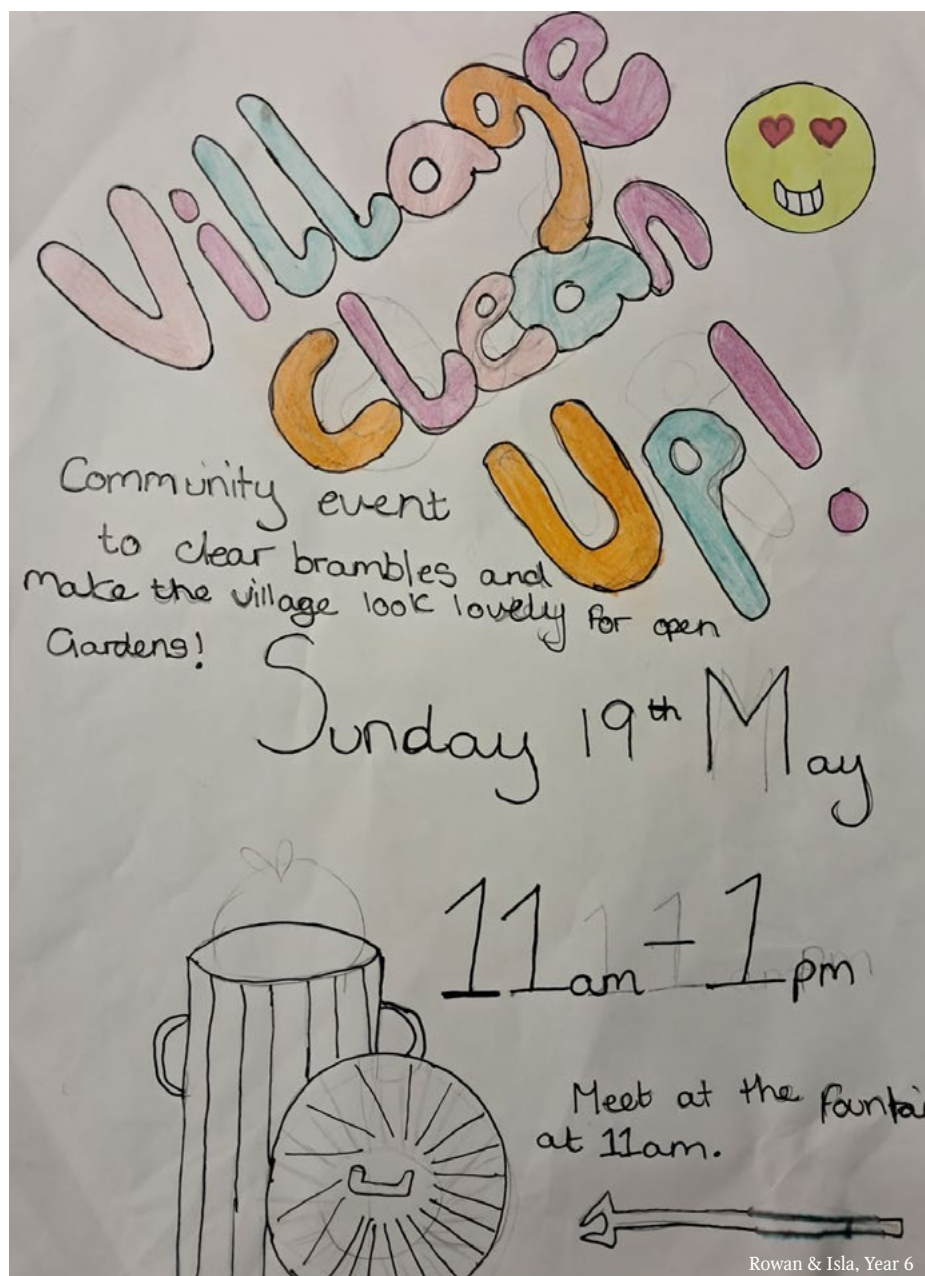 Village
Clean
Up!
Community event
to clear brambles and
make the village look lovely for open
Gardens!
Sunday 19th May
11am - 1pm
Meet at the fountai
at 11am.
Rowan & Isla, Year 6